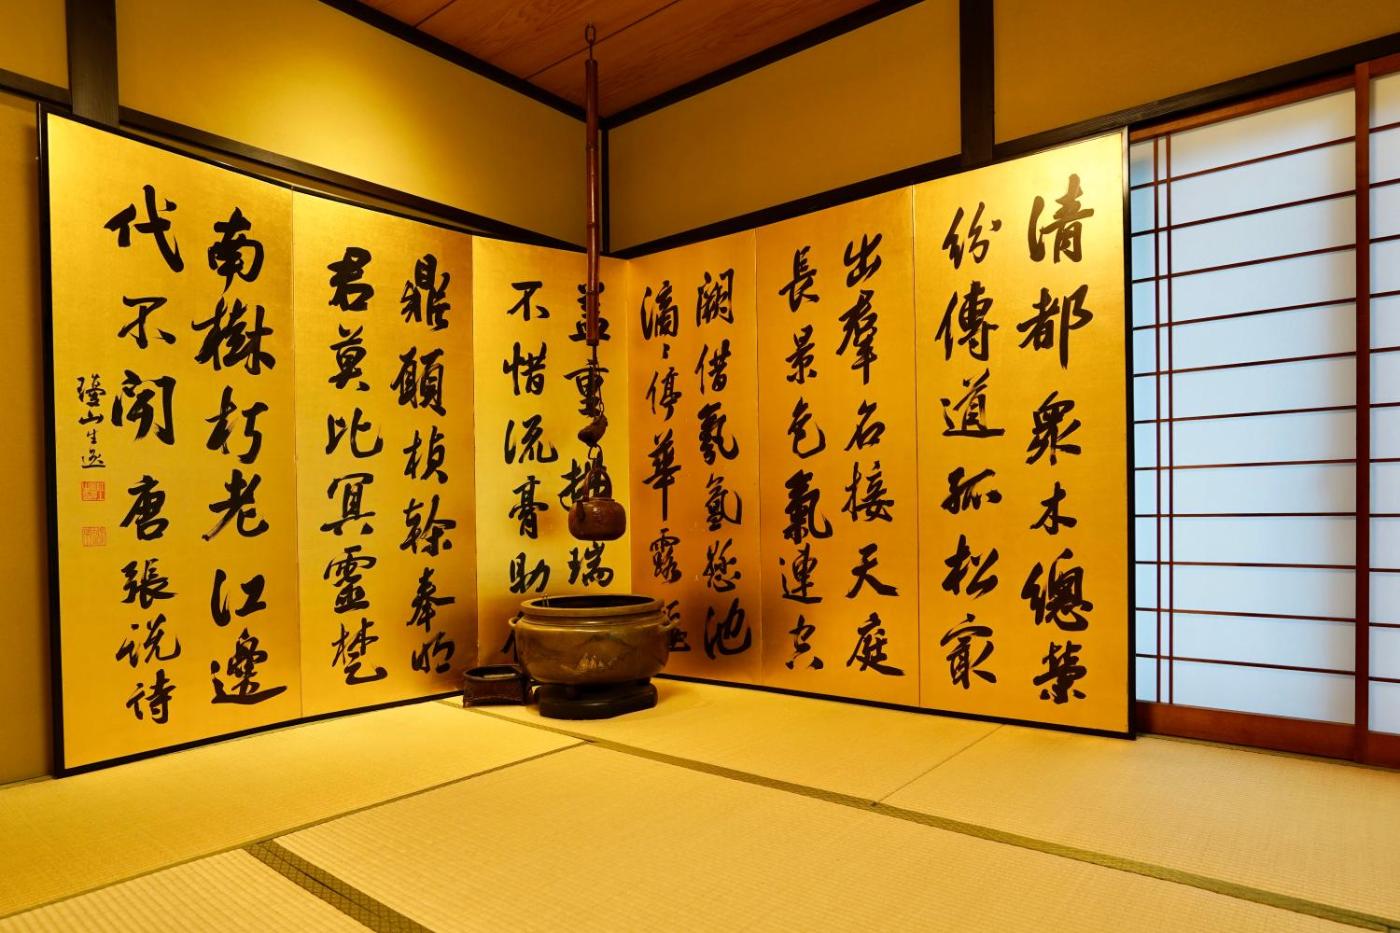 清都衆木總榮
紛傳道孤松最
出羣名接天庭
長景色氣連宮
闕借氛氳懸池
滴〻停華露偃
蓋重〻拂瑞
不惜流膏助仙
鼎願楨幹奉明
君莫比冥靈楚
南樹朽老江邊
代不聞唐張説詩